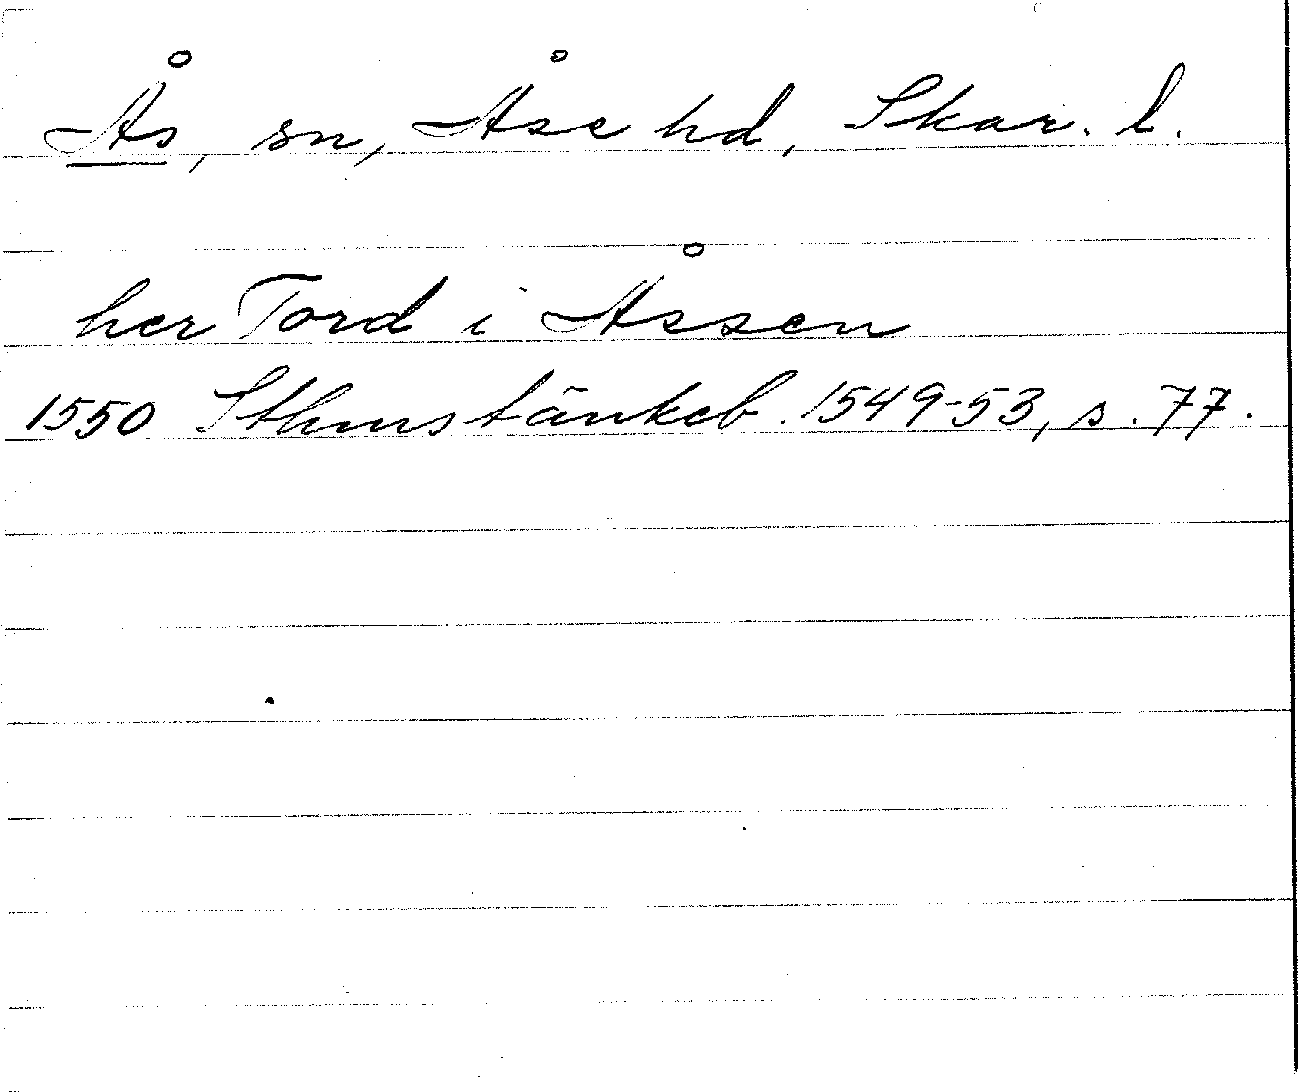 Ås, sn, Åse hd, Skar. l.
her Tord i Åssen
1550 Sthmstänkeb. 1549-53, s. 77.